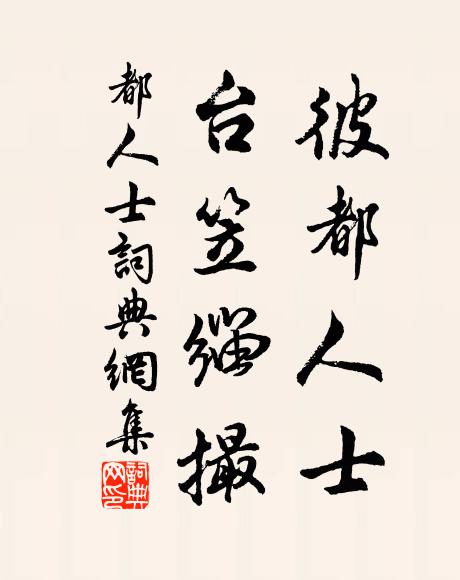 彼都人士
台笠緇撮
都人士詞典網集
詞典網印